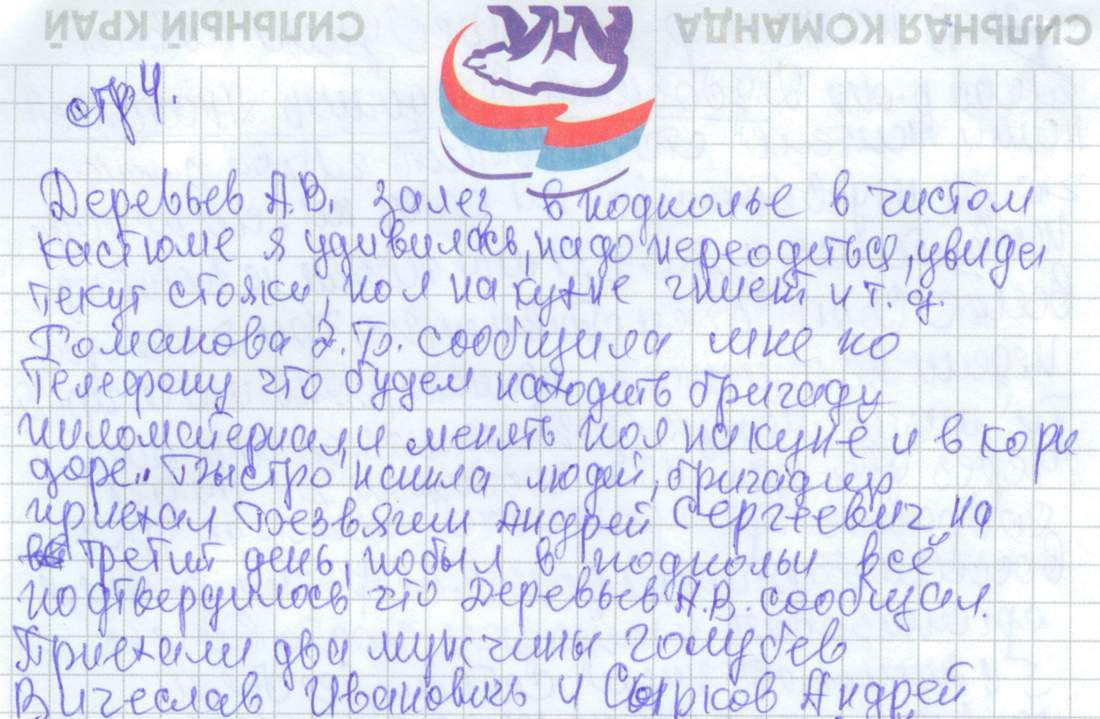 СИЛЬНЫЙ КРАЙ СИЛЬНАЯ КОМАНДА
стр 4.
Деревьев А.В. залез в подполье в чистом
кастюме я удивилась, надо переодеться, увидел
текут стояки, пол на кухне гниет и т. д.
Романова З.Б. сообщила мне по
телефону что будем находить бригаду
пиломатериал, и менять пол на кухне и в кори
доре. Быстро нашла людей, бригадир
приехал Безвягин Андрей Сергеевич на
третий день, побыл в подпольи всё
подтвердилось что Деревьев А.В. сообщил.
Приехали два мужчины Голубев
Вичеслав Ивановичь и Сырков Андрей